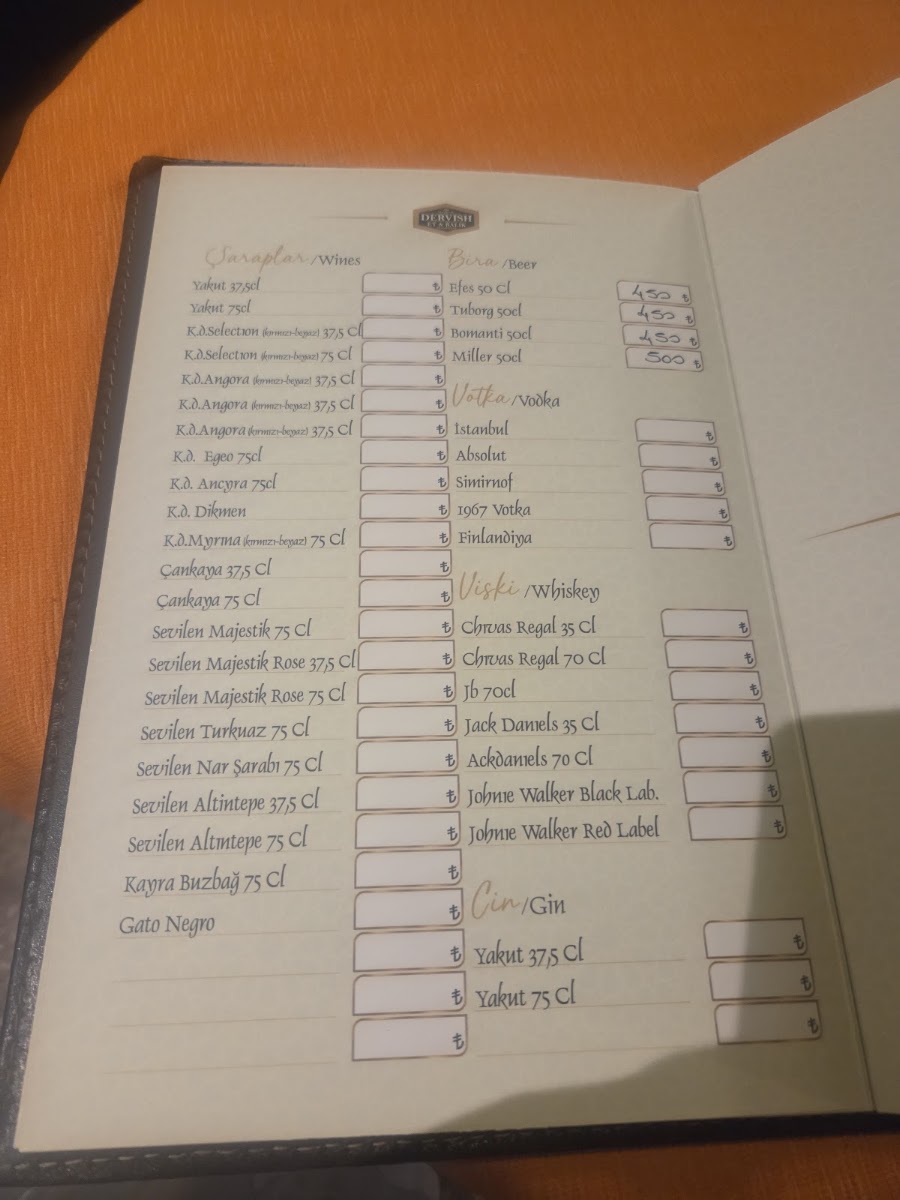 DERVISH
Şaraplar /Wines
Yakut 37,5cl ₺
Yakut 75cl ₺
K.d.Selection (kırmızı-beyaz) 37,5 Cl ₺
K.d.Selection (kırmızı-beyaz) 75 Cl ₺
K.d.Angora (kırmızı-beyaz) 37,5 Cl ₺
K.d.Angora (kırmızı-beyaz) 37,5 Cl ₺
K.d.Angora (kırmızı-beyaz) 37,5 Cl ₺
K.d. Egeo 75cl ₺
K.d. Ancyra 75cl ₺
K.d. Dikmen ₺
K.d.Myrma (kırmızı-beyaz) 75 Cl ₺
Çankaya 37,5 Cl ₺
Çankaya 75 Cl ₺
Sevilen Majestik 75 Cl ₺
Sevilen Majestik Rose 37,5 Cl ₺
Sevilen Majestik Rose 75 Cl ₺
Sevilen Turkuaz 75 Cl ₺
Sevilen Nar Şarabı 75 Cl ₺
Sevilen Altintepe 37,5 Cl ₺
Sevilen Altıntepe 75 Cl ₺
Kayra Buzbağ 75 Cl ₺
Gato Negro ₺
₺
₺
₺
Bira /Beer
Efes 50 Cl 450 ₺
Tuborg 50cl 450 ₺
Bomanti 50cl 450 ₺
Miller 50cl 500 ₺
Votka /Vodka
İstanbul ₺
Absolut ₺
Simirnof ₺
1967 Votka ₺
Finlandiya ₺
Viski /Whiskey
Chıvas Regal 35 Cl ₺
Chıvas Regal 70 Cl ₺
Jb 70cl ₺
Jack Danıels 35 Cl ₺
Ackdanıels 70 Cl ₺
Johnıe Walker Black Lab. ₺
Johnıe Walker Red Label ₺
Cin /Gin
Yakut 37,5 Cl ₺
Yakut 75 Cl ₺
₺